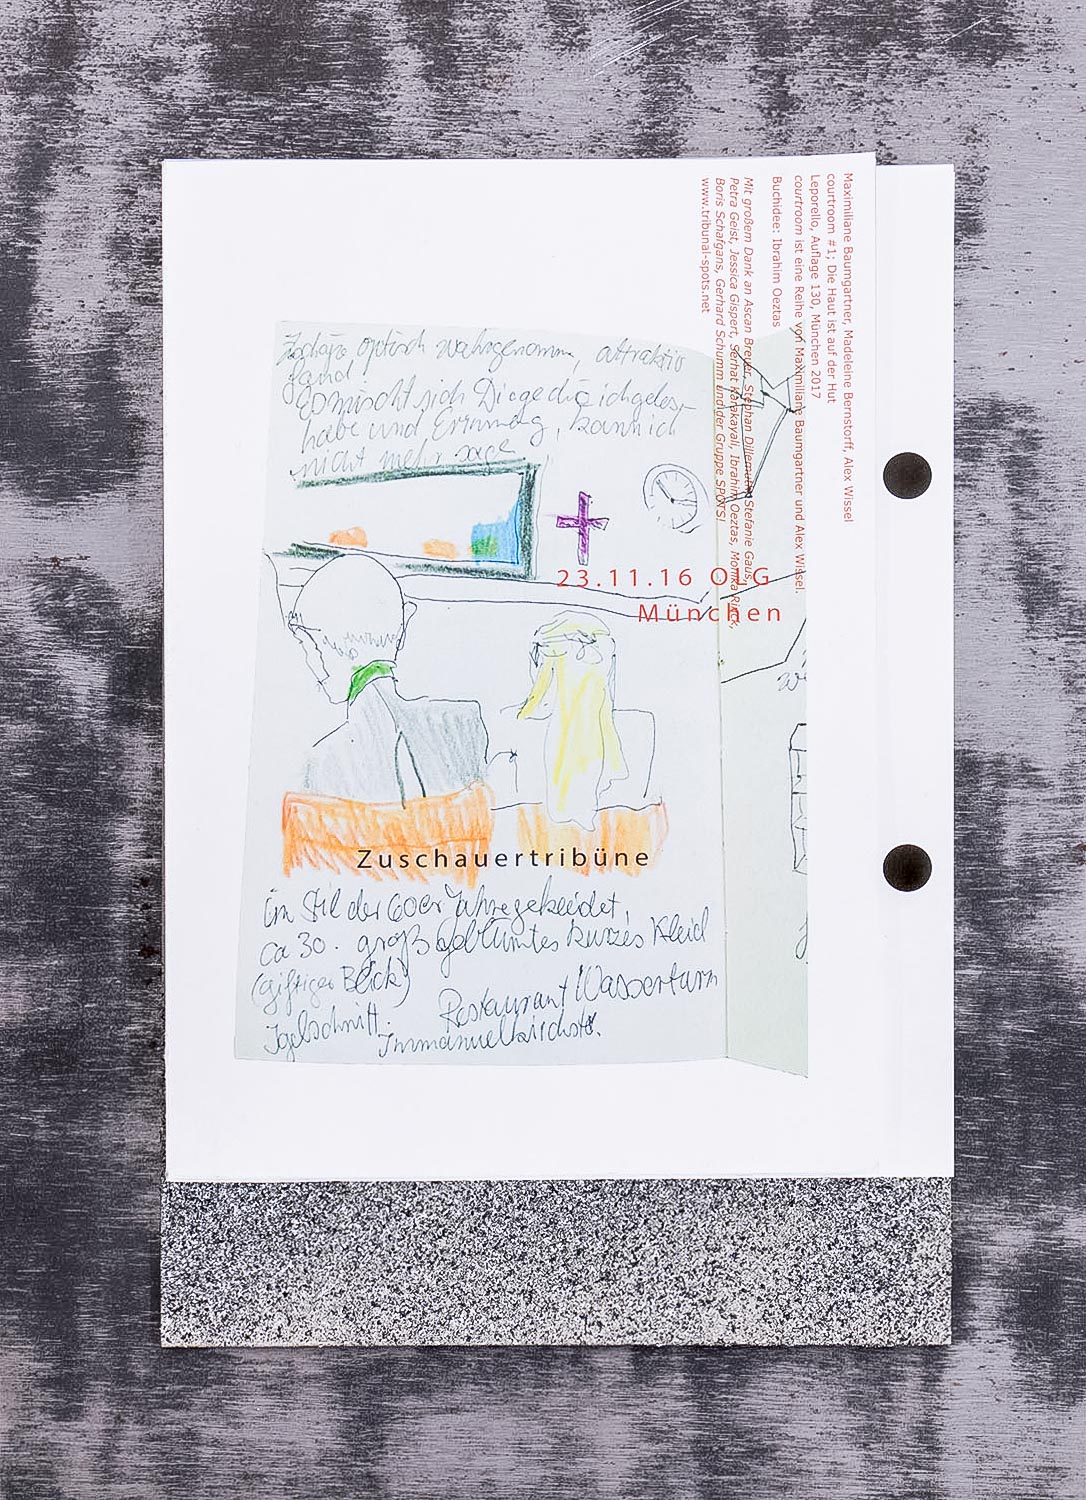 Maximiliane Baumgartner, Madeleine Bernstorff, Alex Wissel
courtroom #1; Die Haut ist auf der Hut
Leporello, Auflage 130, München 2017
courtroom ist eine Reihe von Maximiliane Baumgartner und Alex Wissel.
Buchidee: Ibrahim Oeztas
Mit großem Dank an Ascan Breuer, Stephan Dillemuth, Stefanie Gaus,
Petra Geist, Jessica Gispert, Serhat Karakayali, Ibrahim Oeztas, Monika Rinck,
Boris Schafgans, Gerhard Schumm und der Gruppe SPOTS!
www.tribunal-spots.net
Zschäpe optisch wahrgenommen, attraktiv
fand.
Es mischt sich Dinge die ich geles-
habe und Erinnerung, kann ich
nicht mehr sagen
23.11.16 OLG
München
Zuschauertribüne
im Stil der 60er Jahre gekleidet,
ca 30. groß geblümtes kurzes Kleid
(giftiger Blick)
Restaurant Wasserturm
Igelschnitt.
Immanuelkirchstr.